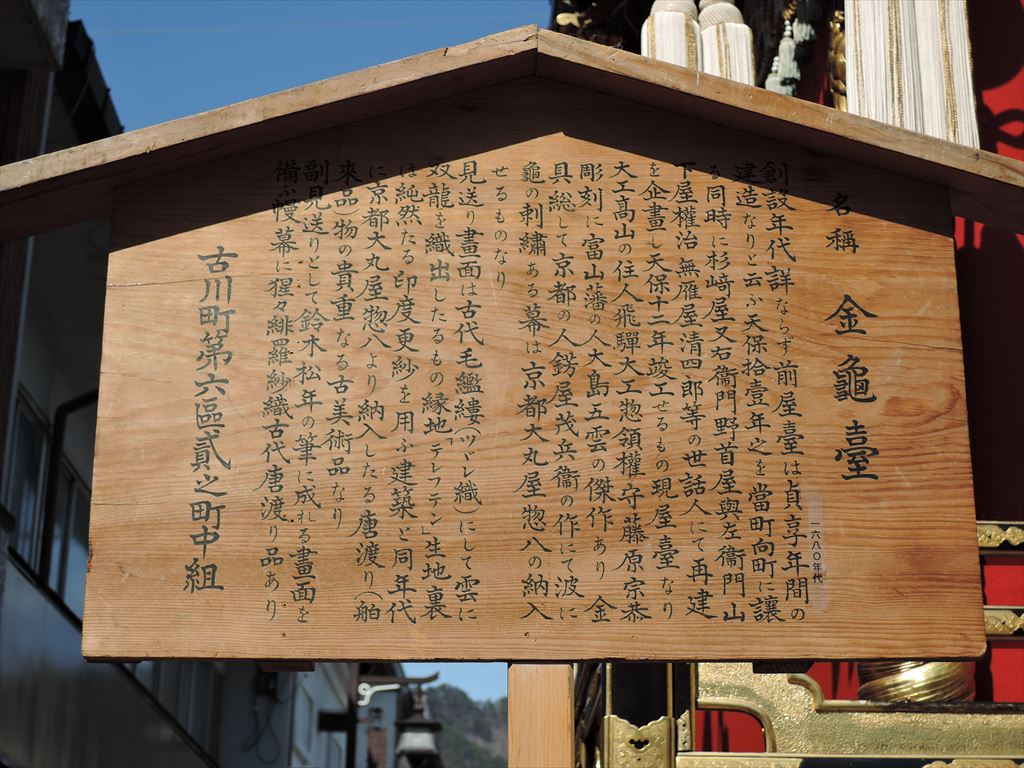 名稱 金龜臺
創設年代詳ならず前屋臺は貞享年間の
一六八〇年代
建造なりと云ふ天保拾壹年之を當町向町に讓
る同時に杉﨑屋又右衞門野首屋與左衞門山
下屋權治無雁屋清四郎等の世話人にて再建
を企畫し天保十二年竣工せるもの現屋臺なり
大工高山の住人飛驒大工惣領權守藤原宗恭
彫刻に富山藩の人大島五雲の傑作あり 金
具総して京都の人錺屋茂兵衞の作にて波に
龜の刺繡ある幕は京都大丸屋惣八の納入
せるものなり
見送り畫面は古代毛繿縷(ツヾレ織)にして雲に
双龍を織出したるもの縁地「テレフテン」生地裏
は純然たる印度更紗を用ふ建築と同年代
に京都大丸屋惣八より納入したる唐渡り(舶
來品)物の貴重なる古美術品なり
副見送りとして鈴木松年の筆に成れる畫面を
備ふ幔幕に猩々緋羅紗織古代唐渡り品あり
古川町第六區貳之町中組